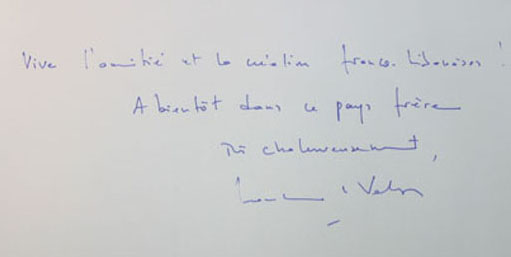 Vive l'amitié et la création franco-libanaises !
A bientôt dans ce pays frère
Très chaleureusement,